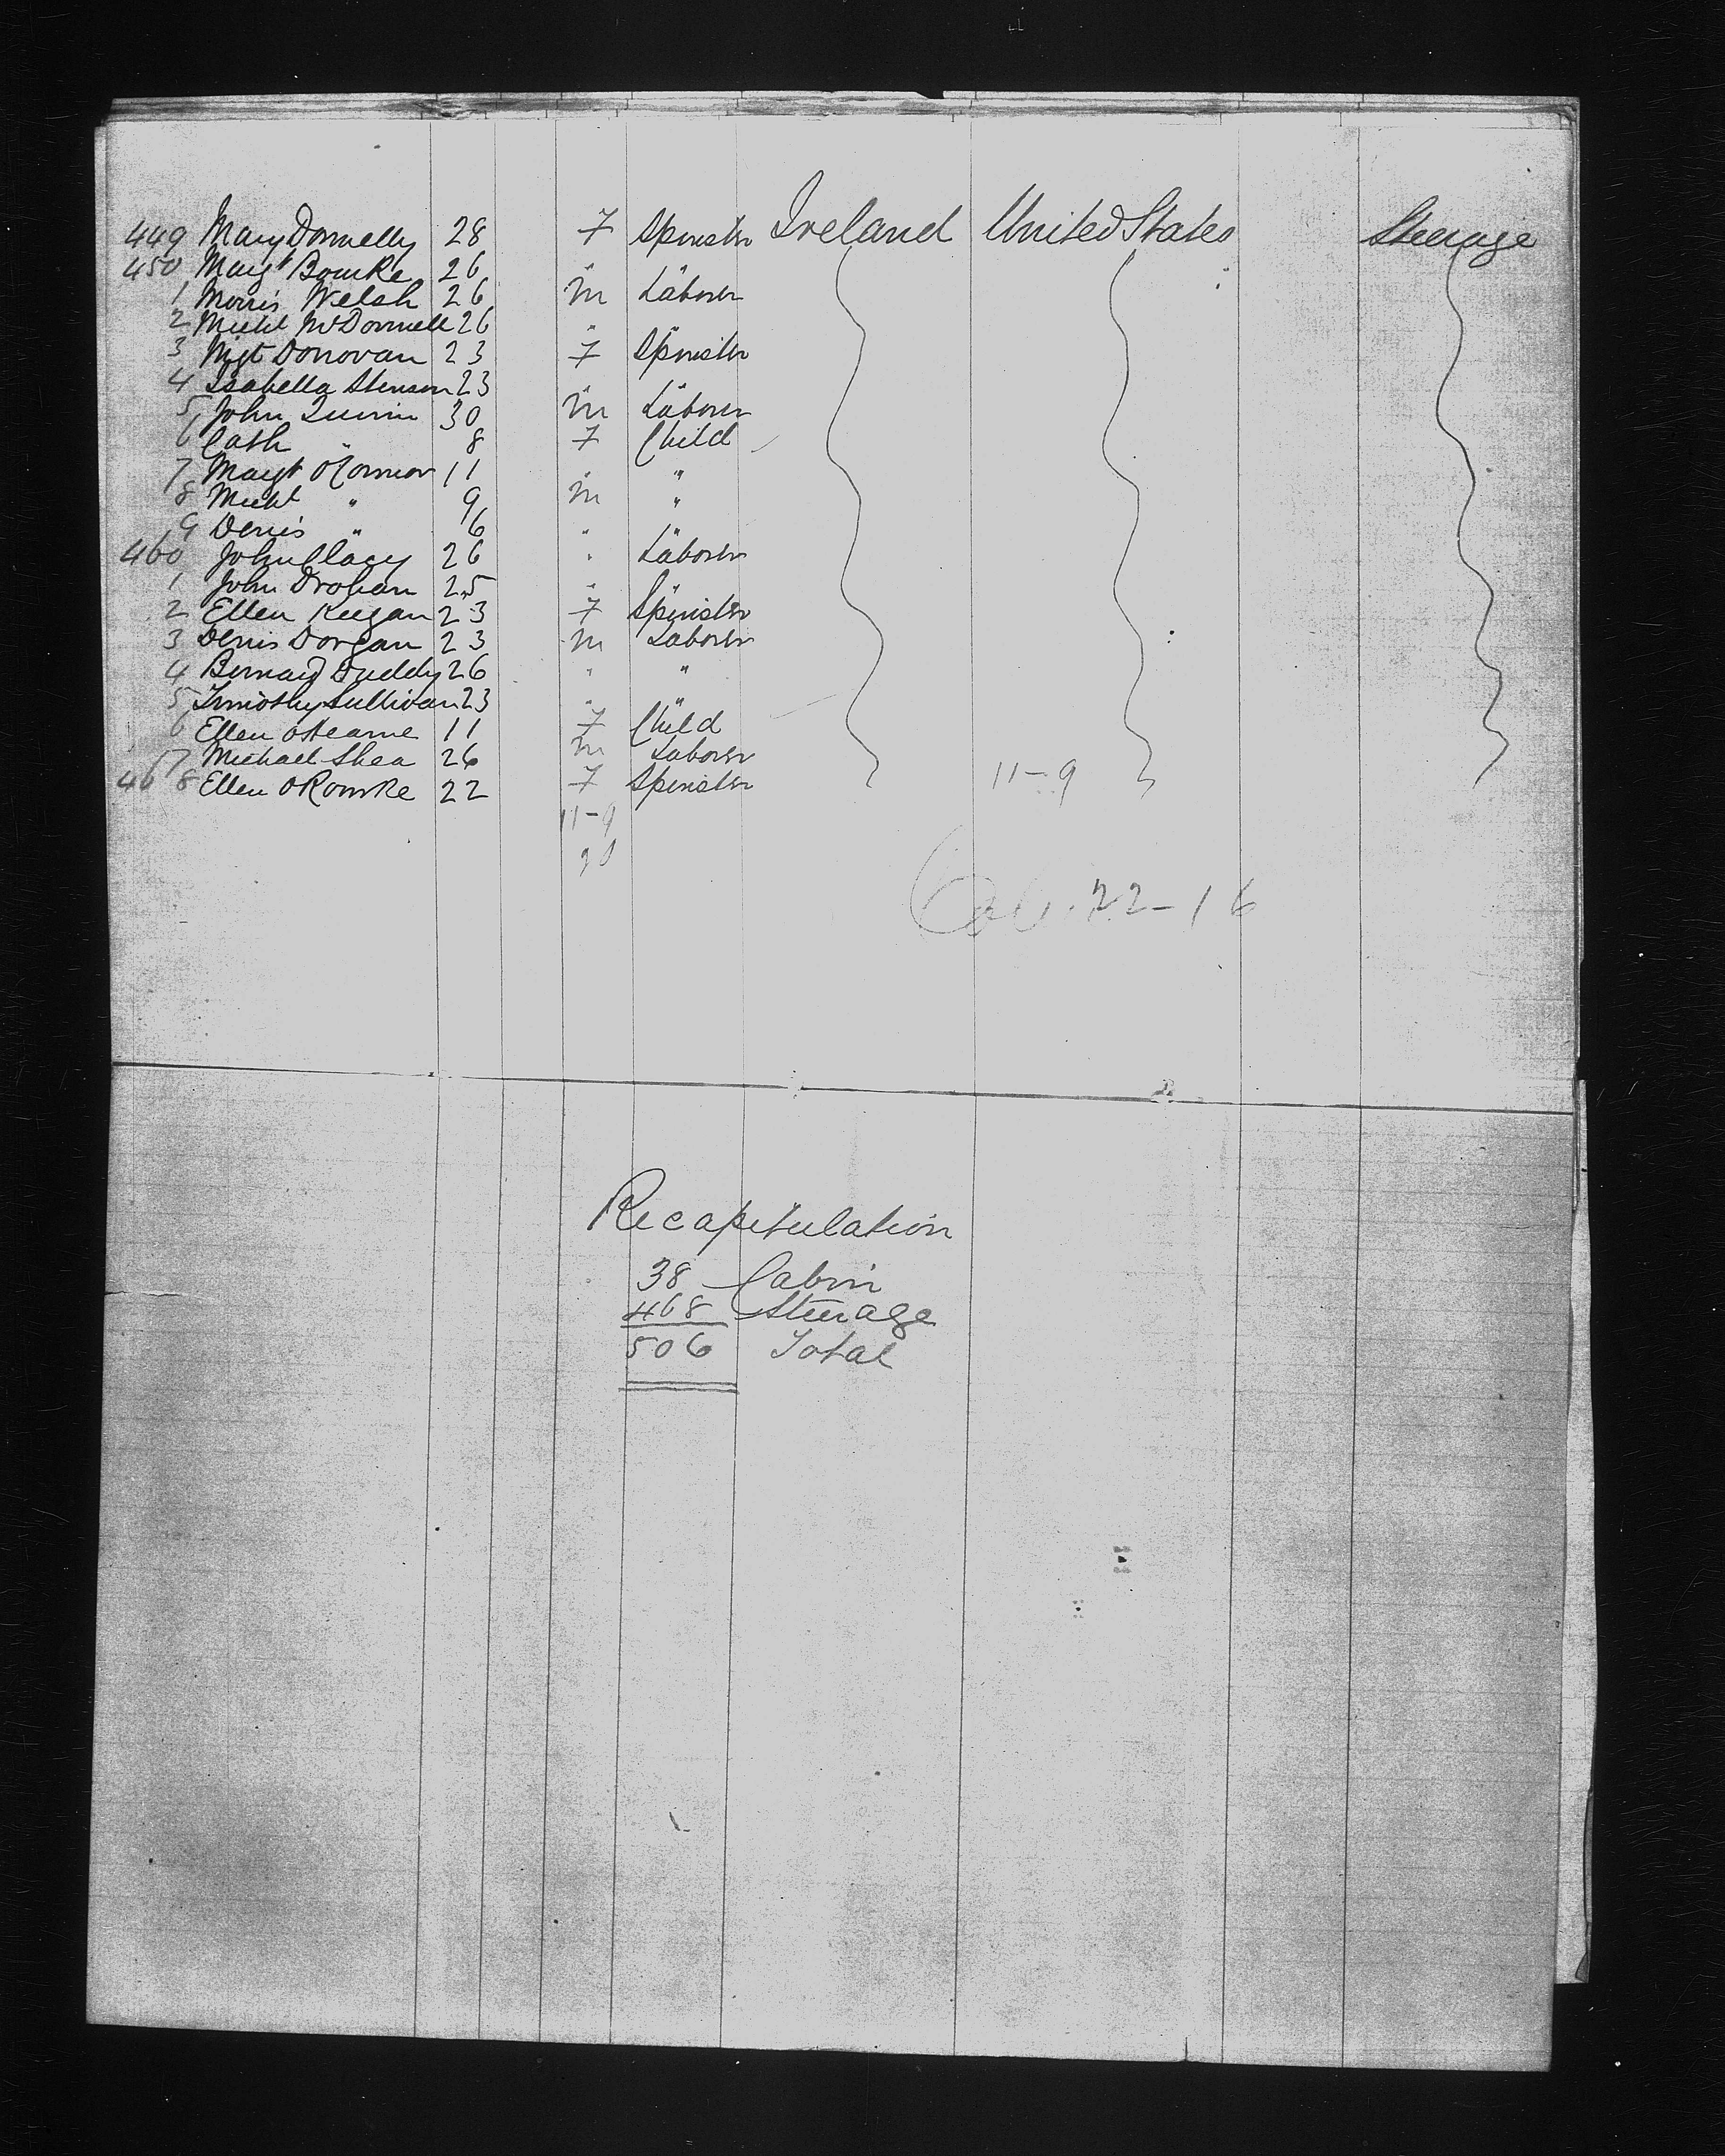 449 Mary Donnelly 28 F Spinster Ireland United States Steerage
450 Margt Bourke 26 " "
1 Morris Welsh 26 m Laborer
2 Michl McDonnell 26 " "
3 Mgt Donovan 23 F Spinster
4 Isabella Stenson 23 " "
5 John Quinn 30 m Laborer
6 Cath " 8 F Child
7 Margt O'Connor 11 " "
8 Michl " 9 m "
9 Denis " 6 " "
460 John Clacy 26 " Laborer
1 John Drohan 25 " "
2 Ellen Keegan 23 F Spinster
3 Denis Dorgan 23 m Laborer
4 Bernard Duddy 26 " "
5 Timothy Sullivan 23 " "
6 Ellen OHearne 11 F Child
467 Michael Shea 26 m Laborer
8 Ellen ORourke 22 F Spinster 11-9
11-9
20
22-16
Recapitulation
38 Cabin
468 Steerage
506 Total